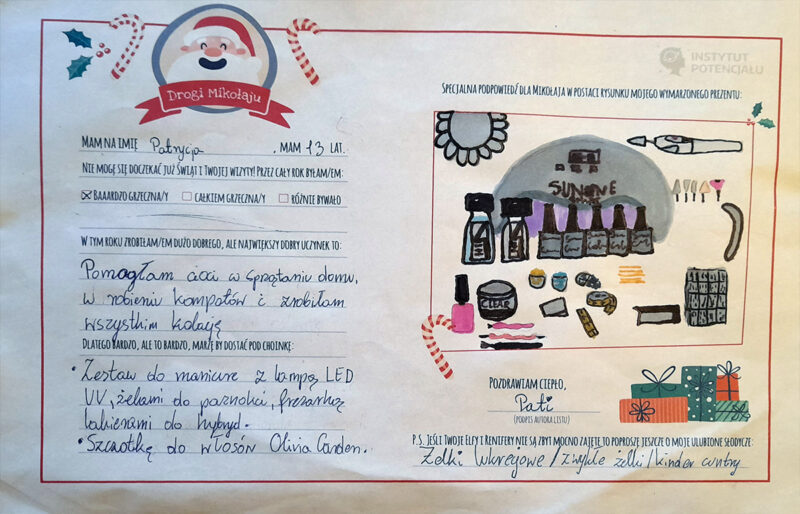 Drogi Mikołaju
INSTYTUT
POTENCJAŁU
MAM NA IMIĘ Patrycja, MAM 13 LAT.
NIE MOGĘ SIĘ DOCZEKAĆ JUŻ ŚWIĄT I TWOJEJ WIZYTY! PRZEZ CAŁY ROK BYŁAM/EM:
☒ BAAARDZO GRZECZNA/Y ☐ CAŁKIEM GRZECZNA/Y ☐ RÓŻNIE BYWAŁO
W TYM ROKU ZROBIŁAM/EM DUŻO DOBREGO, ALE NAJWIĘKSZY DOBRY UCZYNEK TO:
Pomogłam cioci w sprzątaniu domu,
w robieniu kompotów i zrobiłam
wszystkim kolację
DLATEGO BARDZO, ALE TO BARDZO, MARZĘ BY DOSTAĆ POD CHOINKĘ:
• Zestaw do manicure z lampą LED
UV, żelami do paznokci, frezarką
lakierami do hybryd.
• Szczotkę do włosów Olivia Garden.
SPECJALNA PODPOWIEDŹ DLA MIKOŁAJA W POSTACI RYSUNKU MOJEGO WYMARZONEGO PREZENTU:
SUNONE
CLEAR
POZDRAWIAM CIEPŁO,
Pati
(PODPIS AUTORA LISTU)
P.S. JEŚLI TWOJE ELFY I RENIFERY NIE SĄ ZBYT MOCNO ZAJĘTE TO POPROSZĘ JESZCZE O MOJE ULUBIONE SŁODYCZE:
Żelki / zwykłe żelki / kinder country